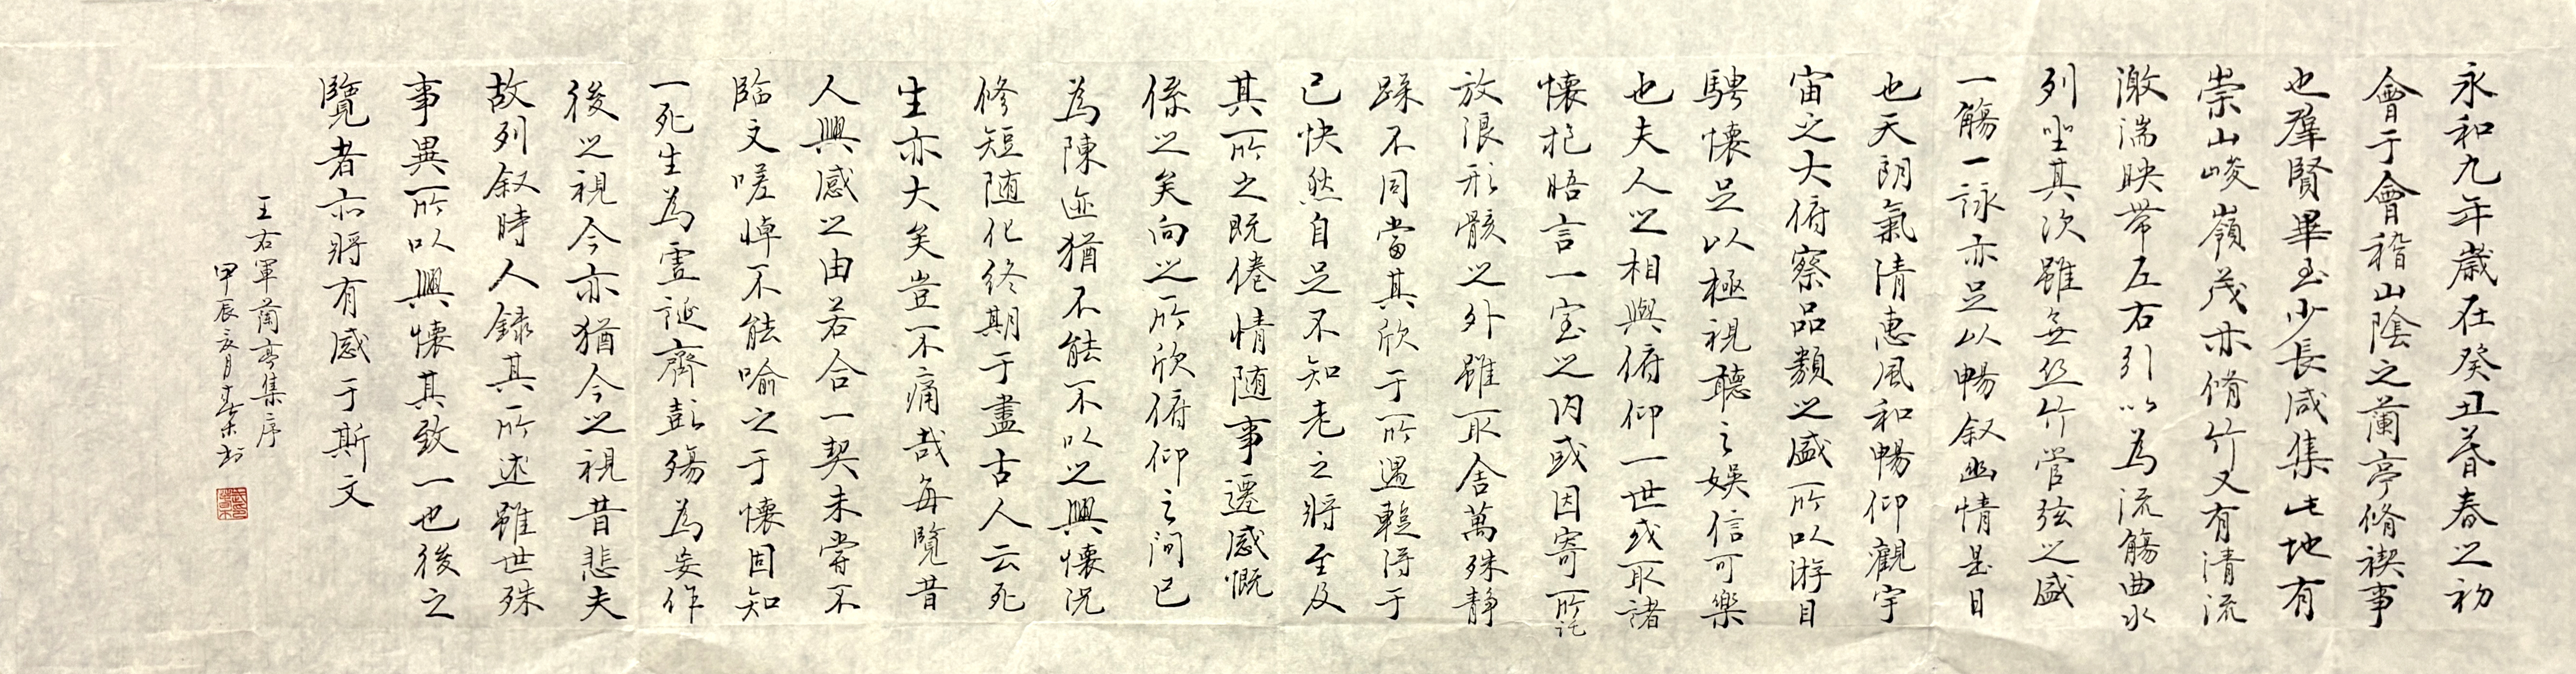 永和九年歳在癸丑暮春之初
會于會稽山陰之蘭亭脩禊事
也羣賢畢至少長咸集此地有
崇山峻嶺茂亦脩竹又有清流
激湍映帶左右引以為流觴曲水
列坐其次雖無丝竹管弦之盛
一觴一詠亦足以暢叙幽情是日
也天朗氣清惠風和暢仰觀宇
宙之大俯察品類之盛所以游目
騁懷足以極視聽之娱信可樂
也夫人之相與俯仰一世或取諸
懷抱晤言一室之内或因寄所託
放浪形骸之外雖取舍萬殊静
躁不同當其欣于所遇輒得于
己快然自足不知老之將至及
其所之既倦情随事遷感慨
係之矣向之所欣俯仰之間已
為陳迹猶不能不以之興懷況
修短随化终期于盡古人云死
生亦大矣豈不痛哉每覽昔
人興感之由若合一契未嘗不
臨文嗟悼不能喻之于懷固知
一死生為虚誕齊彭殤為妄作
後之視今亦猶今之視昔悲夫
故列叙時人録其所述雖世殊
事異所以興懷其致一也後之
覽者亦將有感于斯文
王右軍蘭亭集序
甲辰亥月